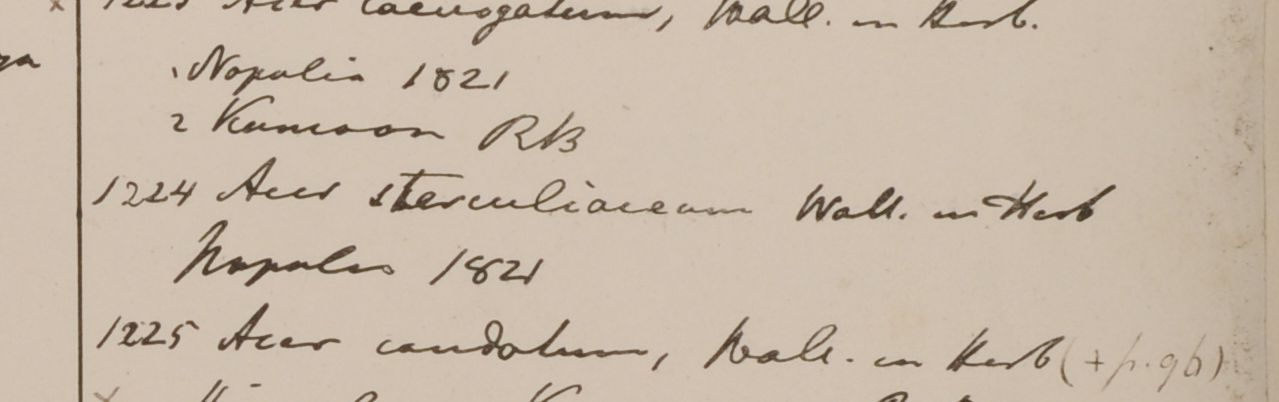 1223 Acer laevigatum, Wall. in Herb.
1 Napalia 1821
2 Kumaon RB
1224 Acer sterculiaceum Wall. in Herb
Napalia 1821
1225 Acer caudatum, Wall. in Herb (+ p. 96)